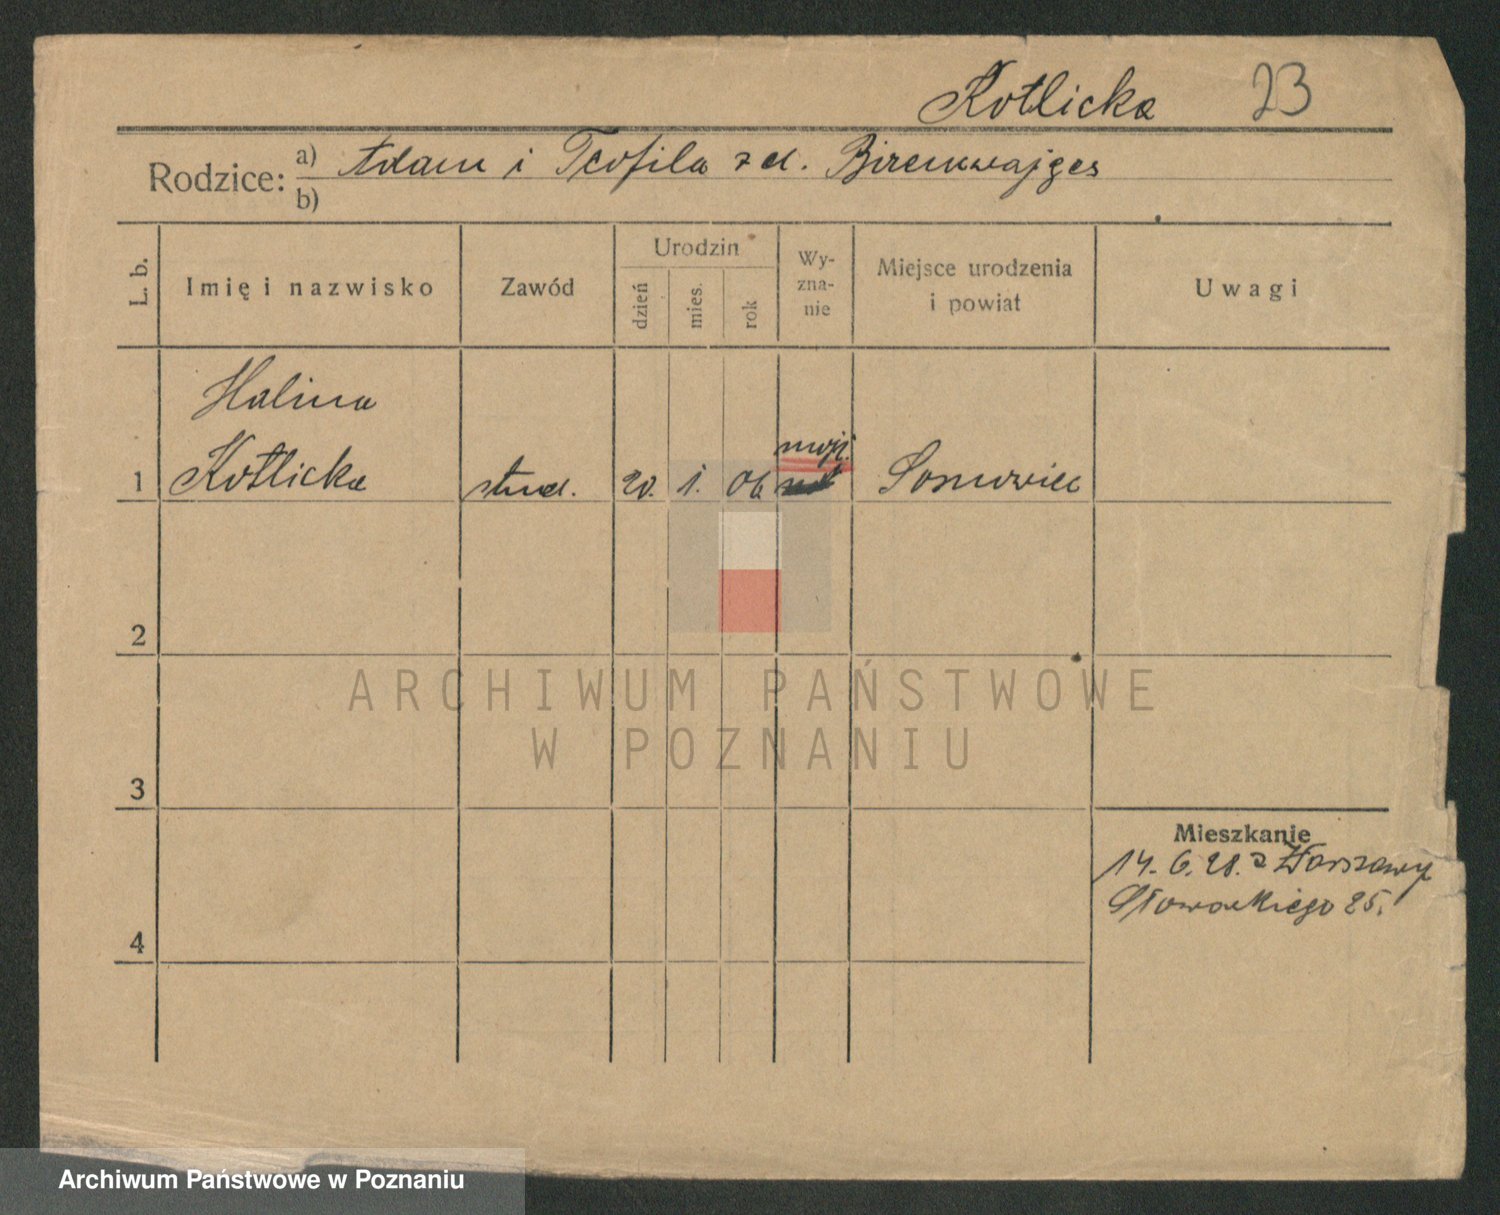 Kotlicka 23
Rodzice: a) Adam i Teofila z d. Birencwajges
b)
L. b.
Imię i nazwisko
Zawód
Urodzin
dzień
mies.
rok
Wy-
zna-
nie
Miejsce urodzenia
i powiat
Uwagi
Halina
mojż.
1 Kotlicka stud. 20. 1. 06 Sosnowiec
2
ARCHIWUM PAŃSTWOWE
W POZNANIU
3
Mieszkanie
14. 6. 28. z Warszawy
Słowackiego 25.
4
Archiwum Państwowe w Poznaniu